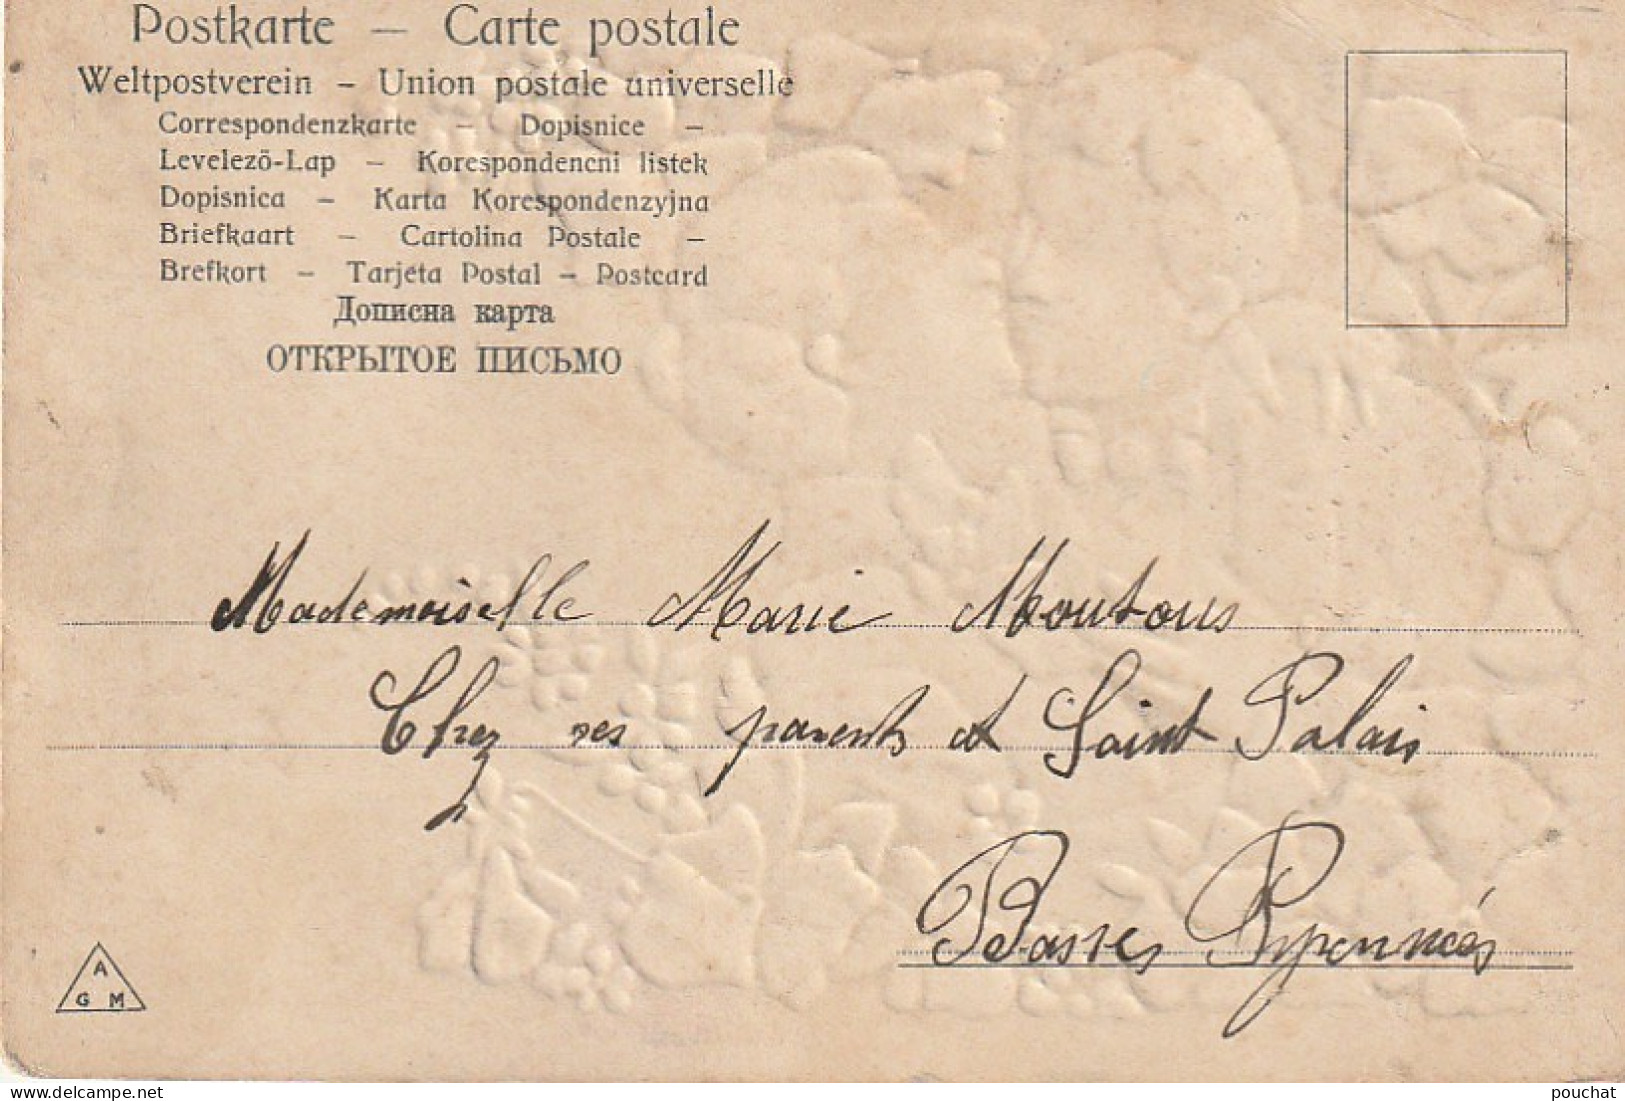 Postkarte — Carte postale
Weltpostverein – Union postale universelle
Correspondenzkarte – Dopisnice –
Levelezö-Lap – Korespondencni listek
Dopisnica – Karta Korespondenzyjna
Briefkaart – Cartolina Postale –
Brefkort – Tarjeta Postal – Postcard
Дописна карта
ОТКРЫТОЕ ПИСЬМО
Mademoiselle Marie Moutous
Chez ses parents à Saint Palais
Basses Pyrennées
A
G M
delcampe.net
pouchat